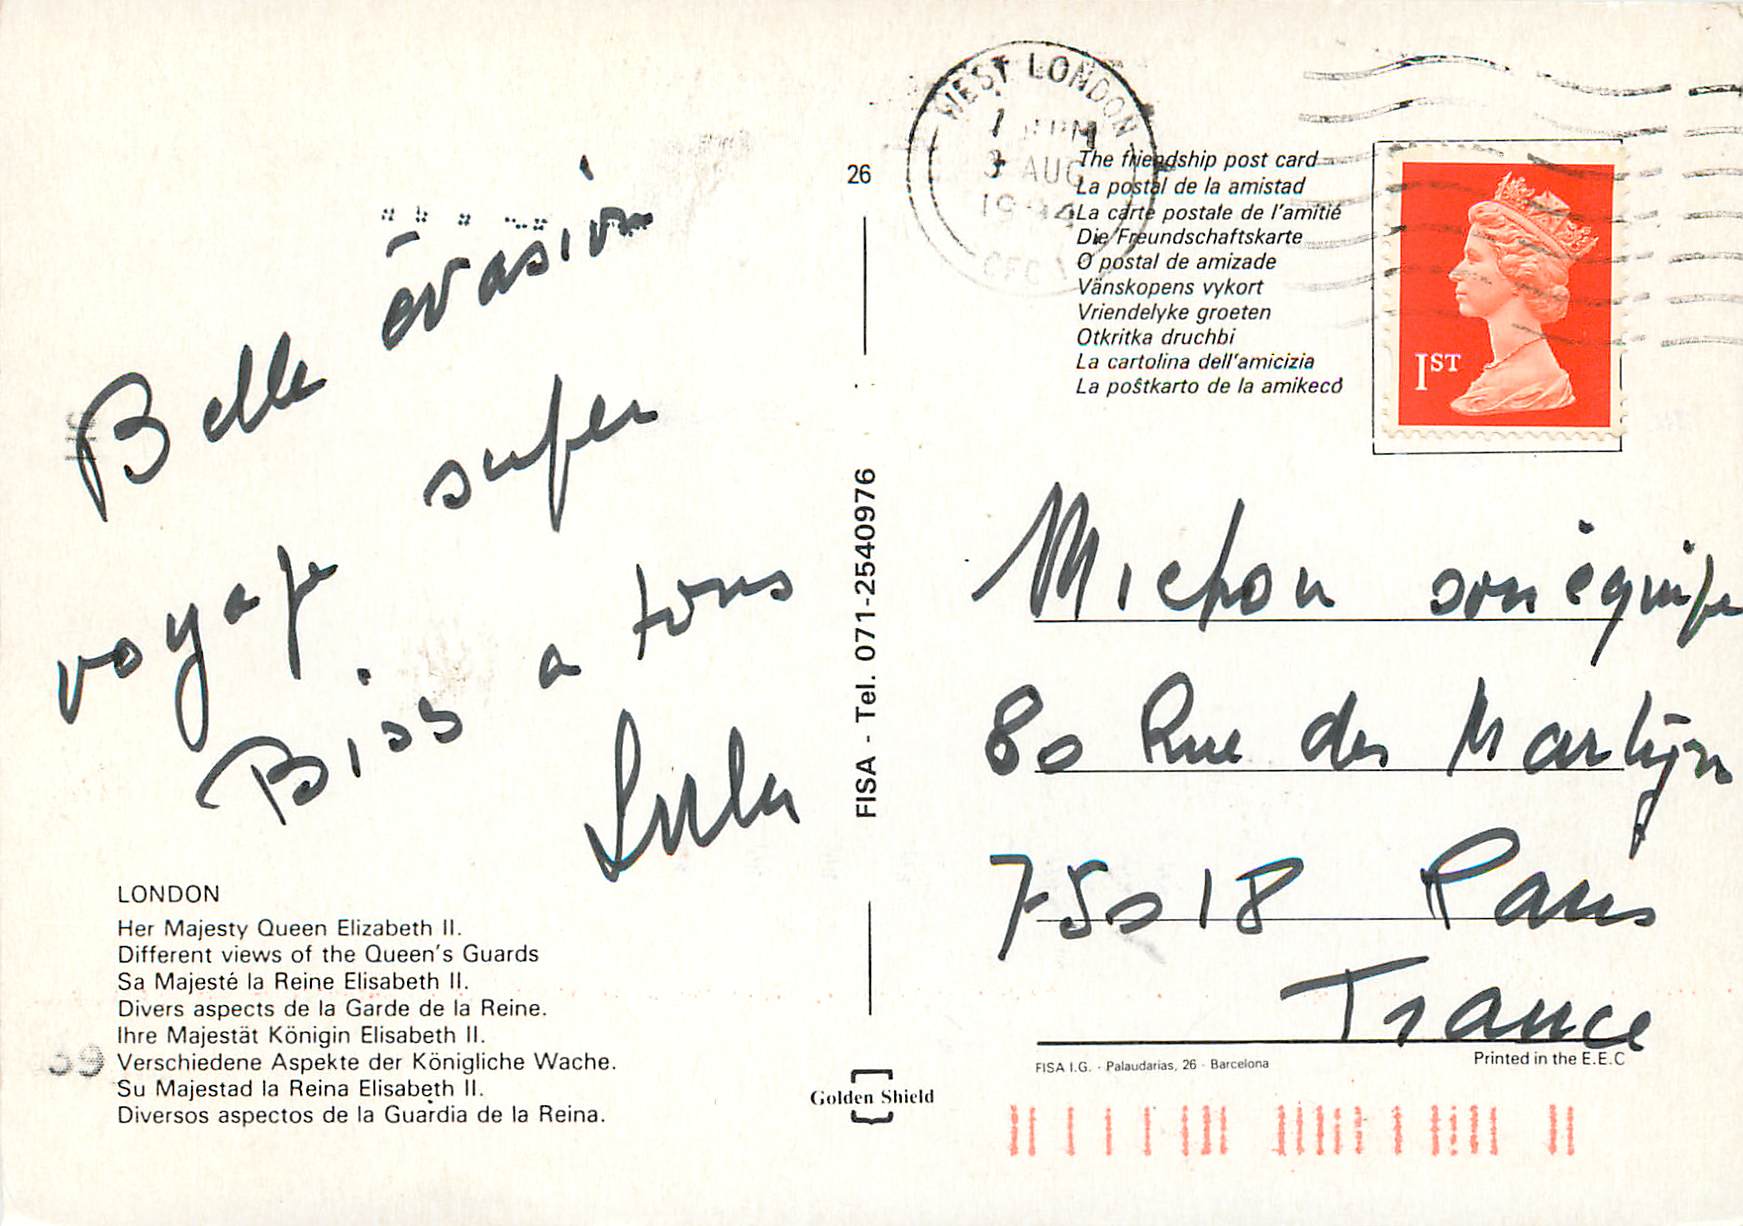 Belle évasion
super
voyage
Biss a tous
Lulu
LONDON
Her Majesty Queen Elizabeth II.
Different views of the Queen's Guards
Sa Majesté la Reine Elisabeth II.
Divers aspects de la Garde de la Reine.
Ihre Majestät Königin Elisabeth II.
Verschiedene Aspekte der Königliche Wache.
Su Majestad la Reina Elisabeth II.
Diversos aspectos de la Guardia de la Reina.
26
FISA - Tel. 071-2540976
Golden Shield
WEST LONDON
PM
3 AUG
The friendship post card
La postal de la amistad
La carte postale de l'amitié
Die Freundschaftskarte
O postal de amizade
Vänskopens vykort
Vriendelyke groeten
Otkritka druchbi
La cartolina dell'amicizia
La poŝtkarto de la amikecô
1ST
Michou équipe
80 Rue des Martyrs
75018 Paris
France
FISA I.G. - Palaudarias, 26 - Barcelona
Printed in the E.E.C